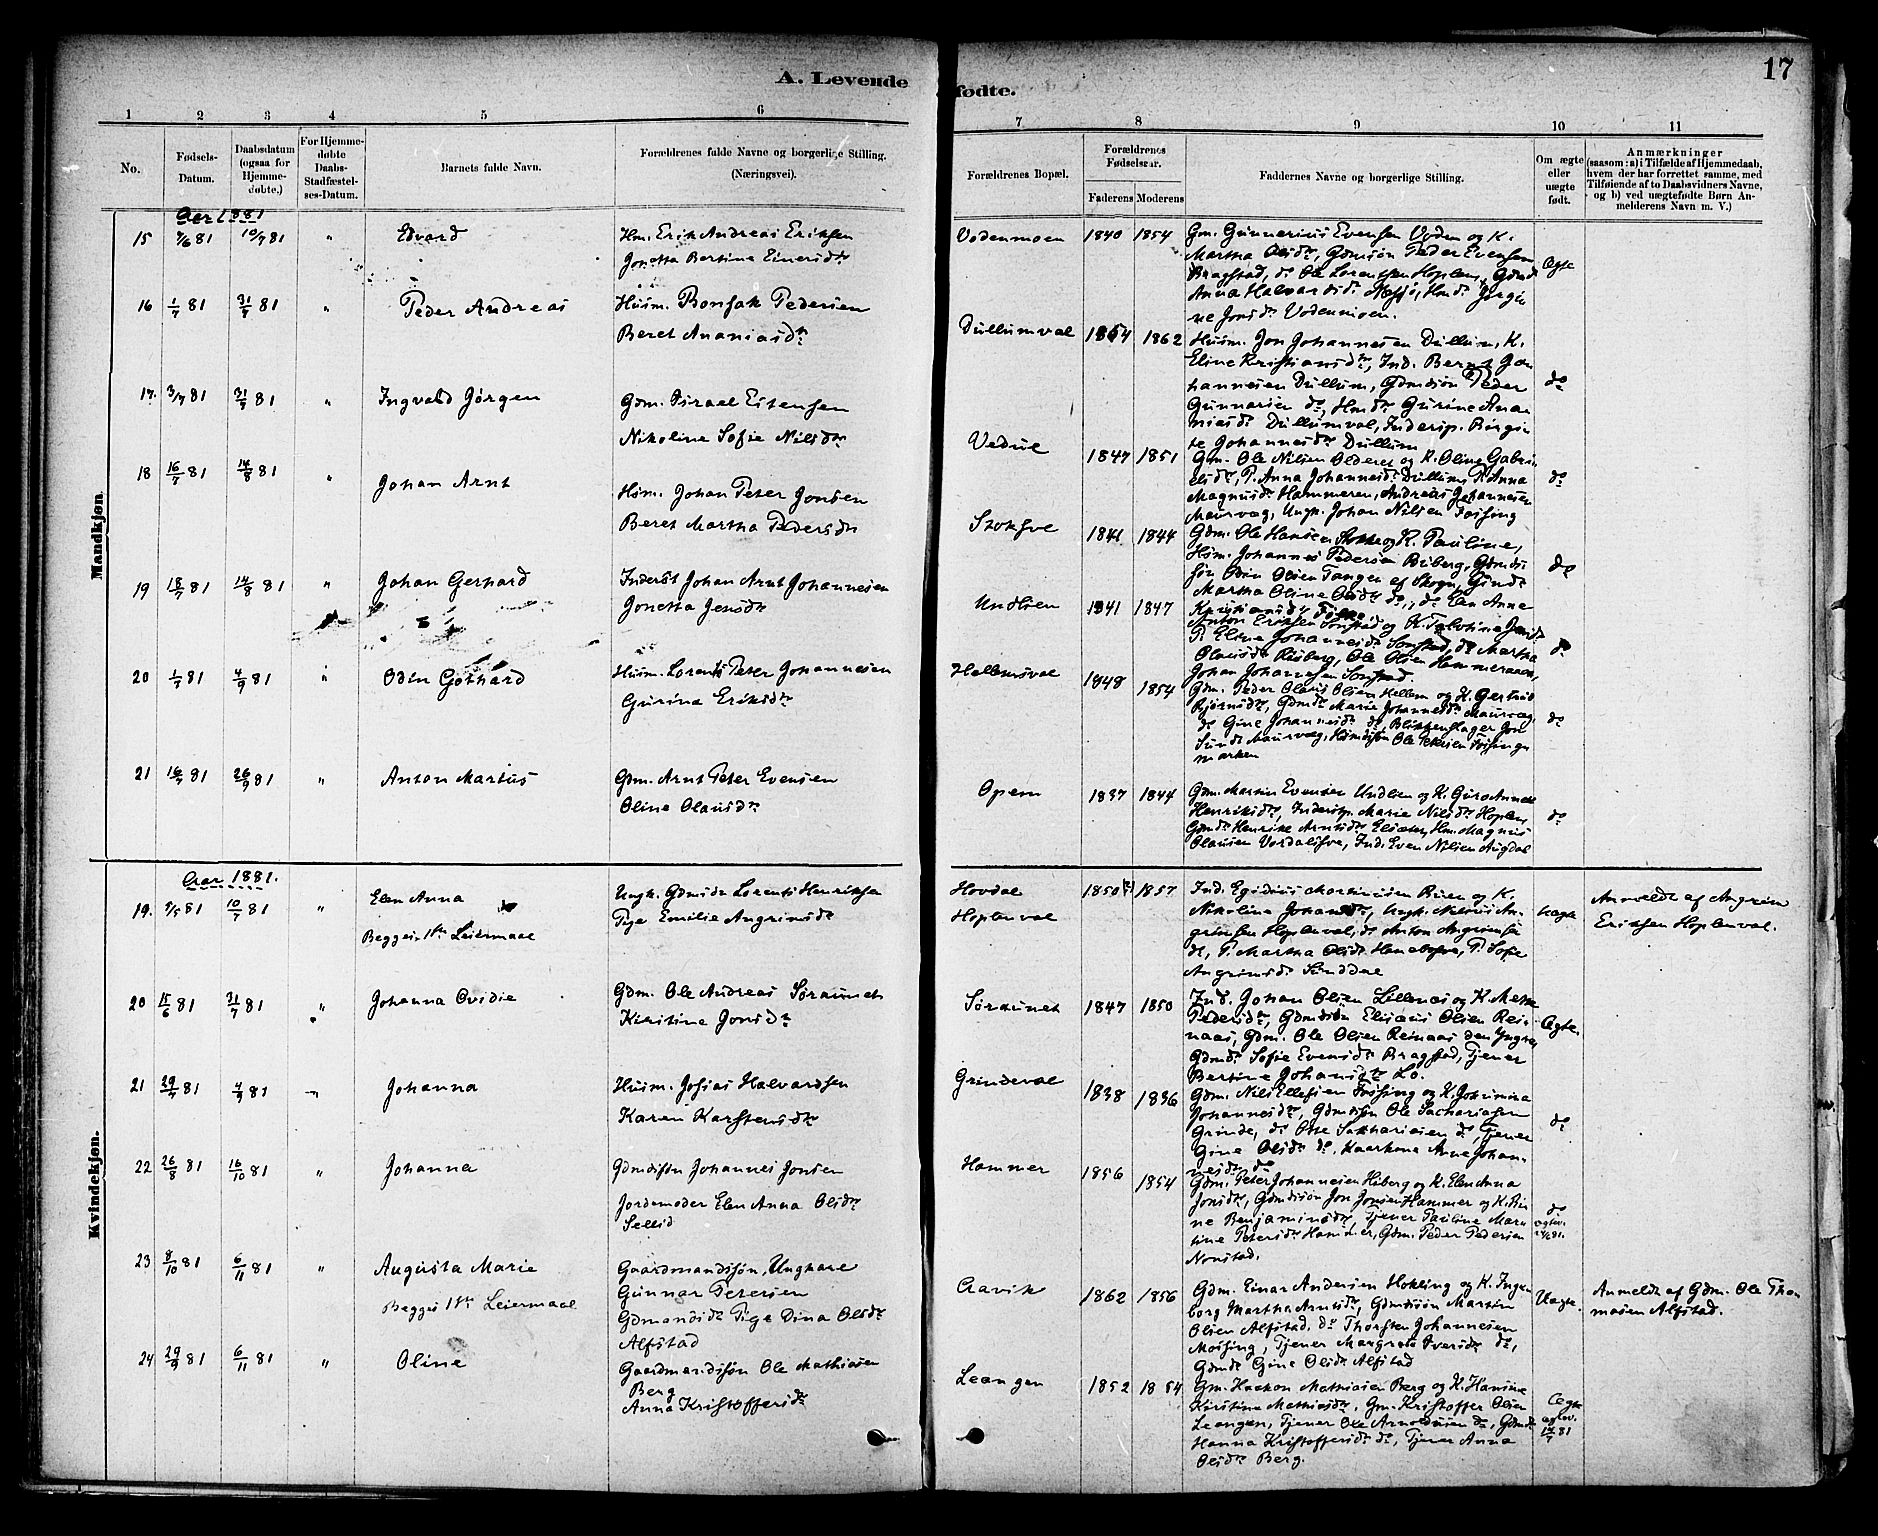 A. Levende
fødte.
17
1 2 3 4 5 6 7 8 9 10 11
No.
Fødsels-
Datum.
Daabsdatum
(ogsaa for
Hjemme-
døbte.)
For Hjemme-
døbte
Daabs-
Stadfæstel-
ses-Datum.
Barnets fulde Navn.
Forældrenes fulde Navne og borgerlige Stilling.
(Næringsvei.)
Forældrenes Bopæl.
Forældrenes
Fødselsaar.
Faderens Moderens
Faddernes Navne og borgerlige Stilling.
Om ægte
eller
uægte
født.
Anmærkninger
(saasom: a) i Tilfælde af Hjemmedaab,
hvem der har forrettet samme, med
Tilføiende af to Daabsvidners Navne,
og b) ved uægtefødte Børn An-
melderens Navn m. V.)
Mandkjøn.
Aar 1881
15 7/6 81 10/7 81 " Edvard
Hm. Erik Andreas Eriksen
Jonetta Bertine Einersdr
Vodenmoen 1840 1854
Gm. Gunnerius Evensen Voden og K.
Martha Olsdr, Gdmsøn Peder Evensen
Bragstad, do Ole Lorentsen Hoplen, Gdmd
Anna Halvardsdr Nessjø, Hmdr Jørgi-
ne Jonsdr Vodenmoen.
Ægte
16 1/7 81 31/7 81 " Peder Andreas
Husm. Bonsak Pedersen
Beret Ananiasdr
Dullumval 1854 1862
Husm. Jon Johannesen Dullum, K.
Eline Kristiansdr, Ind. Bernt Jo-
hannesen Dullum, Gdmdsøn Peder
Gunnarsen do, Hmdr Gurine Ana-
niasdr Dullumval, Indersp. Birgit-
te Johannesdr Dullum
do
17. 3/7 81 31/7 81 " Ingvald Jørgen
Gdm. Israel Estensen
Nikoline Sofie Nilsdr
Vedul 1847 1851
Gm. Ole Nilsen Olderet og K. Oline Gabri-
elsdr, P. Anna Johannesdr Dullum, P. Anna
Magnusdr Hammeren, Andreas Johannesen
Maurvæg, Ungk. Johan Nilsen Forsing
do
18 16/7 81 14/8 81 " Johan Arnt
Hsm. Johan Peter Jonsen
Beret Martha Pedersdr
Stokhve 1841 1844
Gdm. Ole Hansen Stokke og K. Pauline,
Hsm. Johannes Pedersen Biberg, Gdmds-
søn Odin Olsen Tangen af Skogn, Gdmdr
Martha Oline Olsdr do, do Elen Anna
Kristiansdr
do
19 18/7 81 14/8 81 " Johan Gerhard
Inderst Johan Arnt Johannesen
Jonetta Jensdr
Undlien 1841 1847
Anton Eriksen Sonstad og K. Talotine Jensdr
P. Eline Johannesdr Sonstad, do Martha
Olausdr Risberg, Ole Olsen Hammeraaen,
Johan Johannesen Sonstad.
do
20 1/7 81 4/9 81 " Odin Gothard
Husm. Lorents Peter Johannesen
Gurina Eriksdr
Hellemsval 1848 1854
Gdm. Peder Olaus Olsen Hellem og K. Gertrud
Bjørnsdr, Gdmdr Marie Johannesdr Maurvæg,
do Gine Johannesdr do, Blikkenslager Jon
Sund Maurvæg, Hsmdsøn Ole Petersen Forsings-
marken
do
21 16/7 81 26/9 81 " Anton Marius
Gdm. Arnt Peter Evensen
Oline Olausdr
Opem 1837 1844
Gdm. Martin Evensen Undlien og K. Guro Anna
Henriksdr, Indersp. Marie Nilsdr Hoplen,
Gdmdr Henrikke Arntsdr Elsæter, Hm. Magnus
Olausen Vordalshve, Ind. Even Nilsen Augdal
do
Kvindekjøn.
Aar 1881.
19. 7/5 81 10/7 81 " Elen Anna
Begges 1ste Leiermaal
Ungk. Gdmsøn Lorents Henriksen
Pige Emilie Angrimsdr
Hovdal
Hoplenval
1850 1857
Ind. Egidius Martinusen Biren og K.
Nikoline Johansdr, Ungk. Nilaus An-
grimsen Hoplenval, do Anton Angrimsen
do, P. Martha Olsdr Henebshve, P. Sofie
Angrimsdr Sunddal
Uægte
Anmeldt af Angrim
Eriksen Hoplenval.
20 15/6 81 31/7 81 " Johanna Ovidie
Gdm. Ole Andreas Søraunet
Kirstine Jonsdr
Søraunet 1847 1850
Ind. Johan Olsen Lillenæs og K. Mette
Pedersdr, Gdmdsøn Elisæus Olsen Rein-
aas, Gdm. Ole Olsen Reinaas den Yngre,
Gdmdr Sofie Evensdr Bragstad, Tjener
Bertine Johansdr Lo.
Ægte.
21 29/7 81 4/9 81 " Johanna
Husm. Josias Halvardsen
Karen Karstensdr
Grindeval 1838 1836
Gdm. Nils Ellefsen Forsing og K. Johannna
Johannesdr, Gdmdsøn Ole Sachariasen
Grinde, do Otte Sakkariasen do, Tjener
Gine Olsdr do, Kaarkone Anne Johan-
nesdr do
do
22 26/8 81 16/10 81 " Johanna
Gdmdsøn Johannes Jonsen
Jordemoder Elen Anna Olsdr
Sellid
Hammer 1856 1854
Gdm. Peter Johannesen Hiberg og K. Elen Anna
Jonsdr, Gdmdsøn Jon Jonsen Hammer og K. Bi-
ne Benjaminsdr, Tjener Pauline Mar-
tine Petersdr Hammer, Gdm. Peder Pedersen
Nonstad.
do
23 8/10 81 6/11 81 " Augusta Marie
Begges 1ste Leiermaal
Gaardmandssøn, Ungkarl
Gunnar Petersen
Gdmandsdr Pige Dina Olsdr
Alfstad
Aavik 1862 1856
Gdm. Einar Andersen Hokling og K. Inge-
borg Martha Arntsdr, Gdmdsøn Martin
Olsen Alfstad, do Thorsten Johannesen
Moising, Tjener Margrete Iversdr do,
Gdmdr Gine Olsdr Alfstad
Uægte.
Anmeldt af Gdm. Ole Tho-
masen Alfstad.
24 29/9 81 6/11 81 " Oline
Gaardmandssøn Ole Mathiasen
Berg
Anna Kristoffersdr
Leangen 1852 1854
Gm. Haakon Mathiasen Berg og K. Hansine
Kirstine Mathiasdr, Gm. Kristoffer Olsen
Leangen, Tjener Ole Arnoldusen do, Gdmdr
Hanna Kristoffersdr do, Tjener Anna
Olsdr Berg.
Ægte
ægtev.
14/7 81